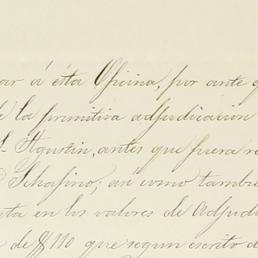 ar á ésta Oficina, por ante
la primitiva adjudicacion
S. Agustin, antes que fuera
así como tambi
ta en los valores de Adjudi
de $110 que segun escrito d